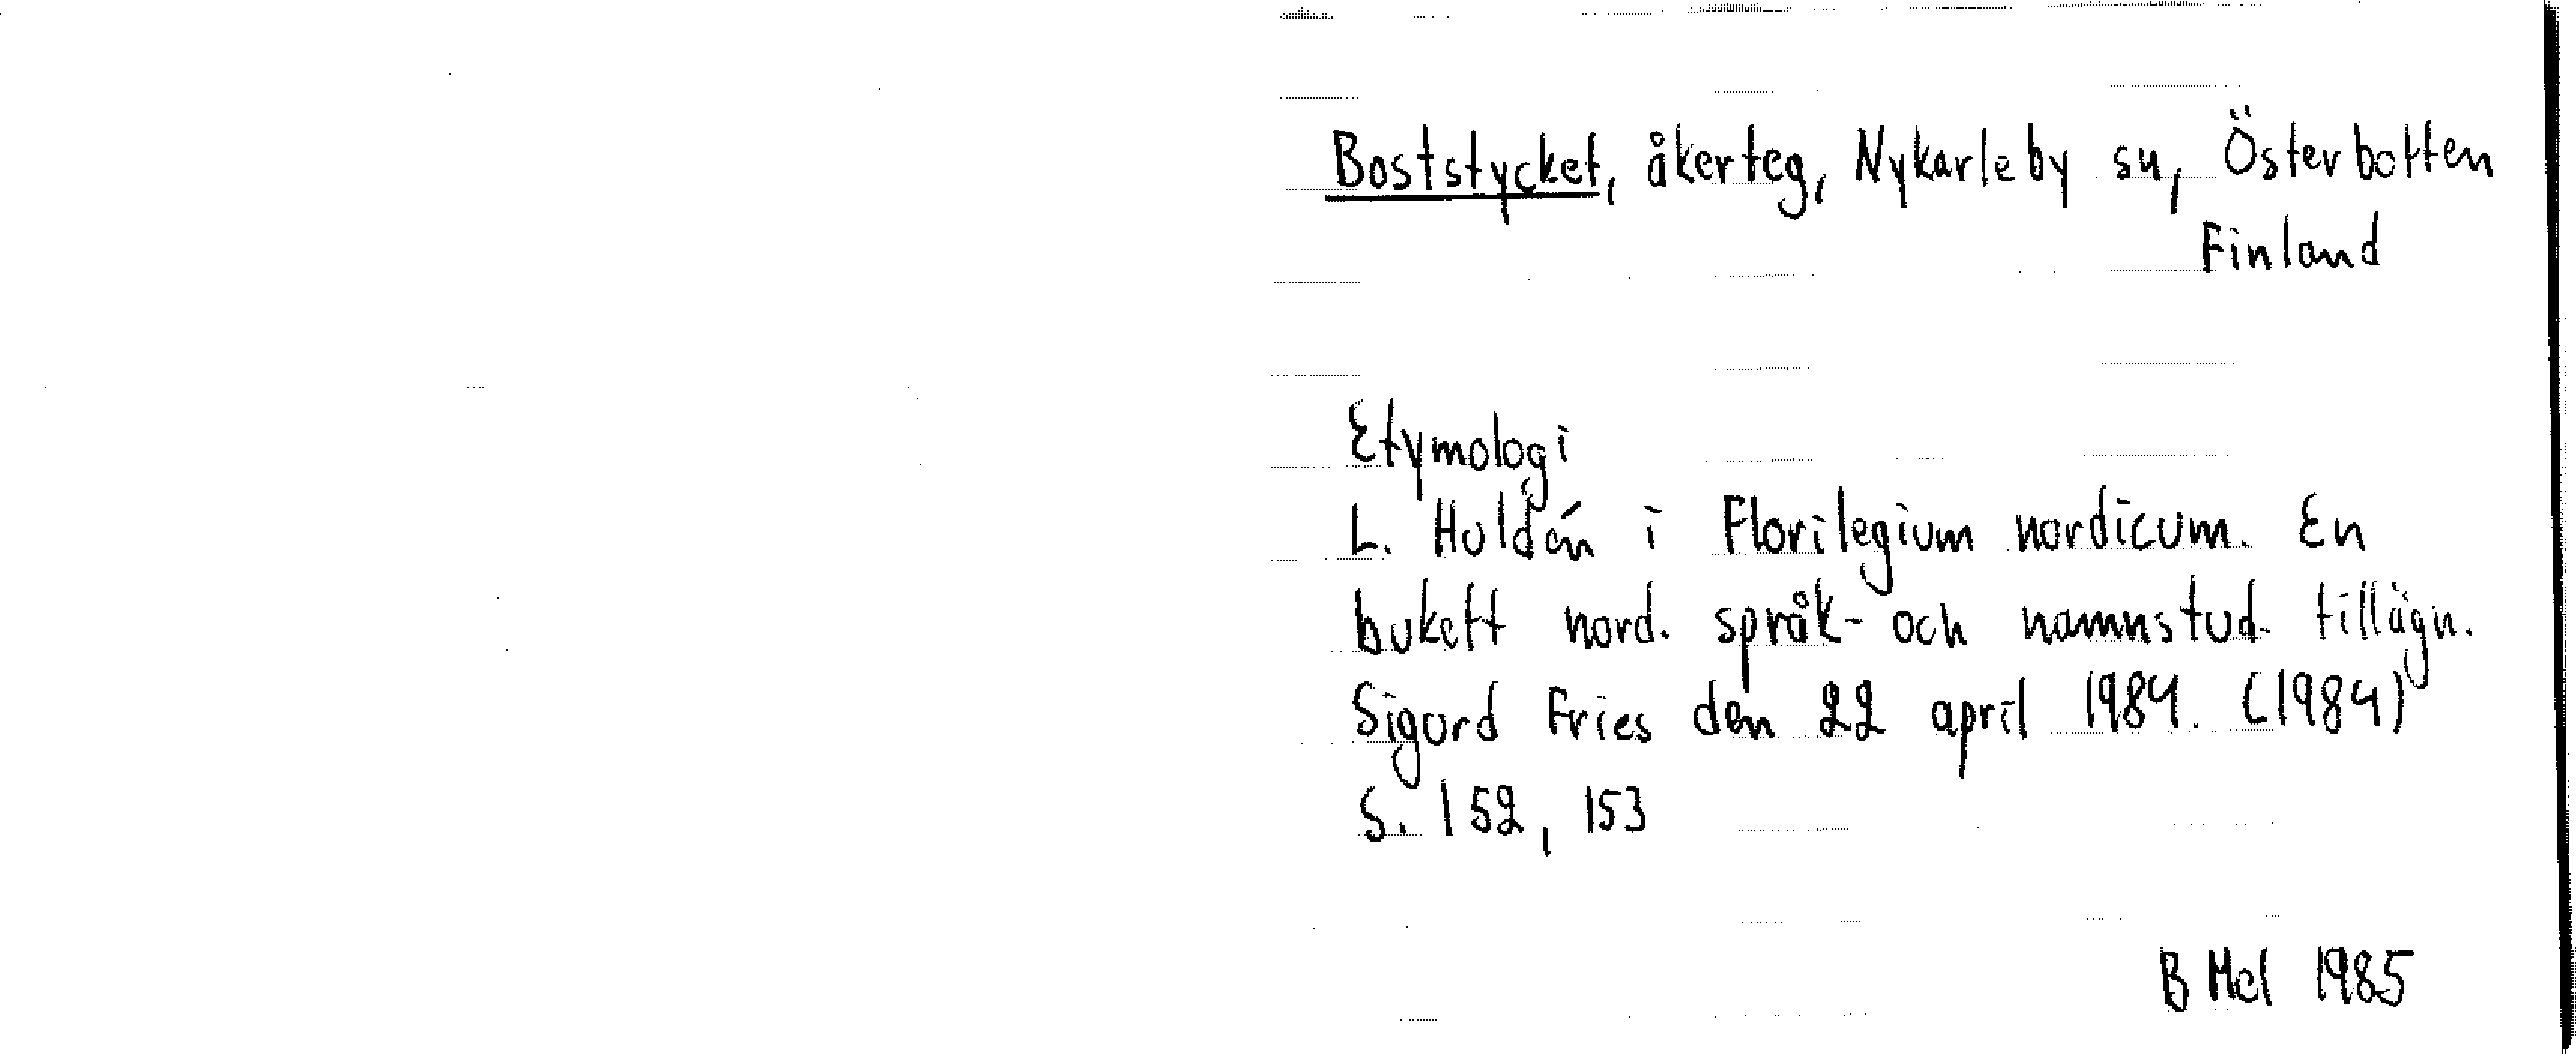 Boststycket, åkerteg, Nykarleby sn, Österbotten
Finland
Etymologi
L. Huldén i Florilegium nordicum. En
bukett nord. språk- och namnstud. tillägn.
Sigurd Fries den 22 april 1984. (1984)
S. 152, 153
B Mel 1985